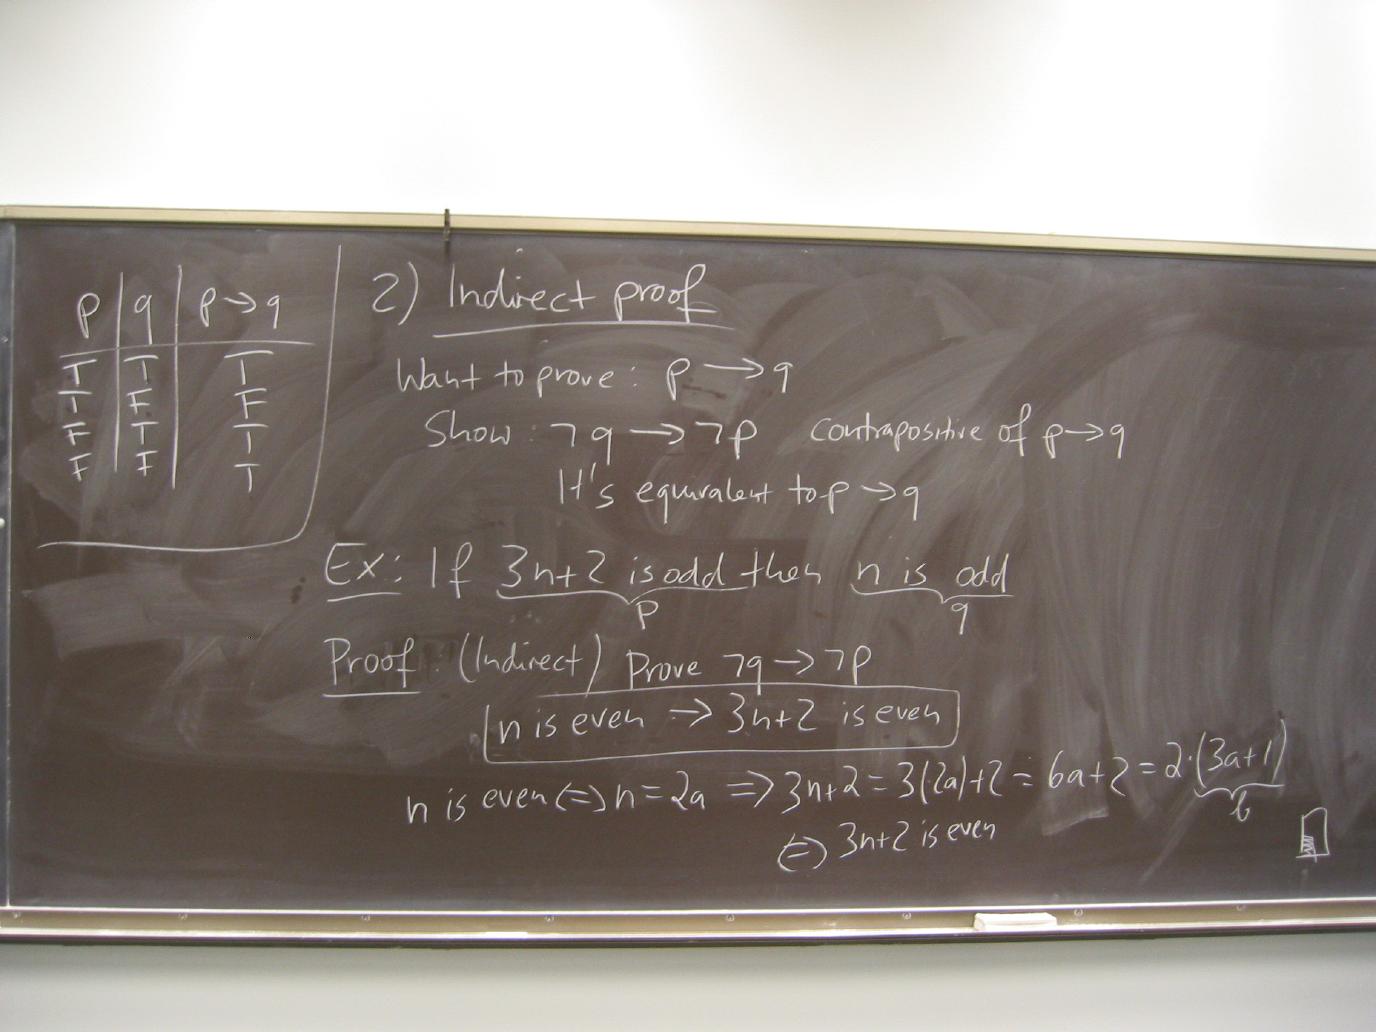 p q p → q
T T T
T F F
F T T
F F T
2) Indirect proof
Want to prove: p → q
Show: ¬q → ¬p contrapositive of p → q
It's equivalent to p → q
Ex: If 3n+2 is odd then n is odd
p q
Proof: (Indirect) Prove ¬q → ¬p
n is even → 3n+2 is even
n is even ⇔ n = 2a ⇒ 3n+2 = 3(2a)+2 = 6a+2 = 2·(3a+1)
b
⇔ 3n+2 is even